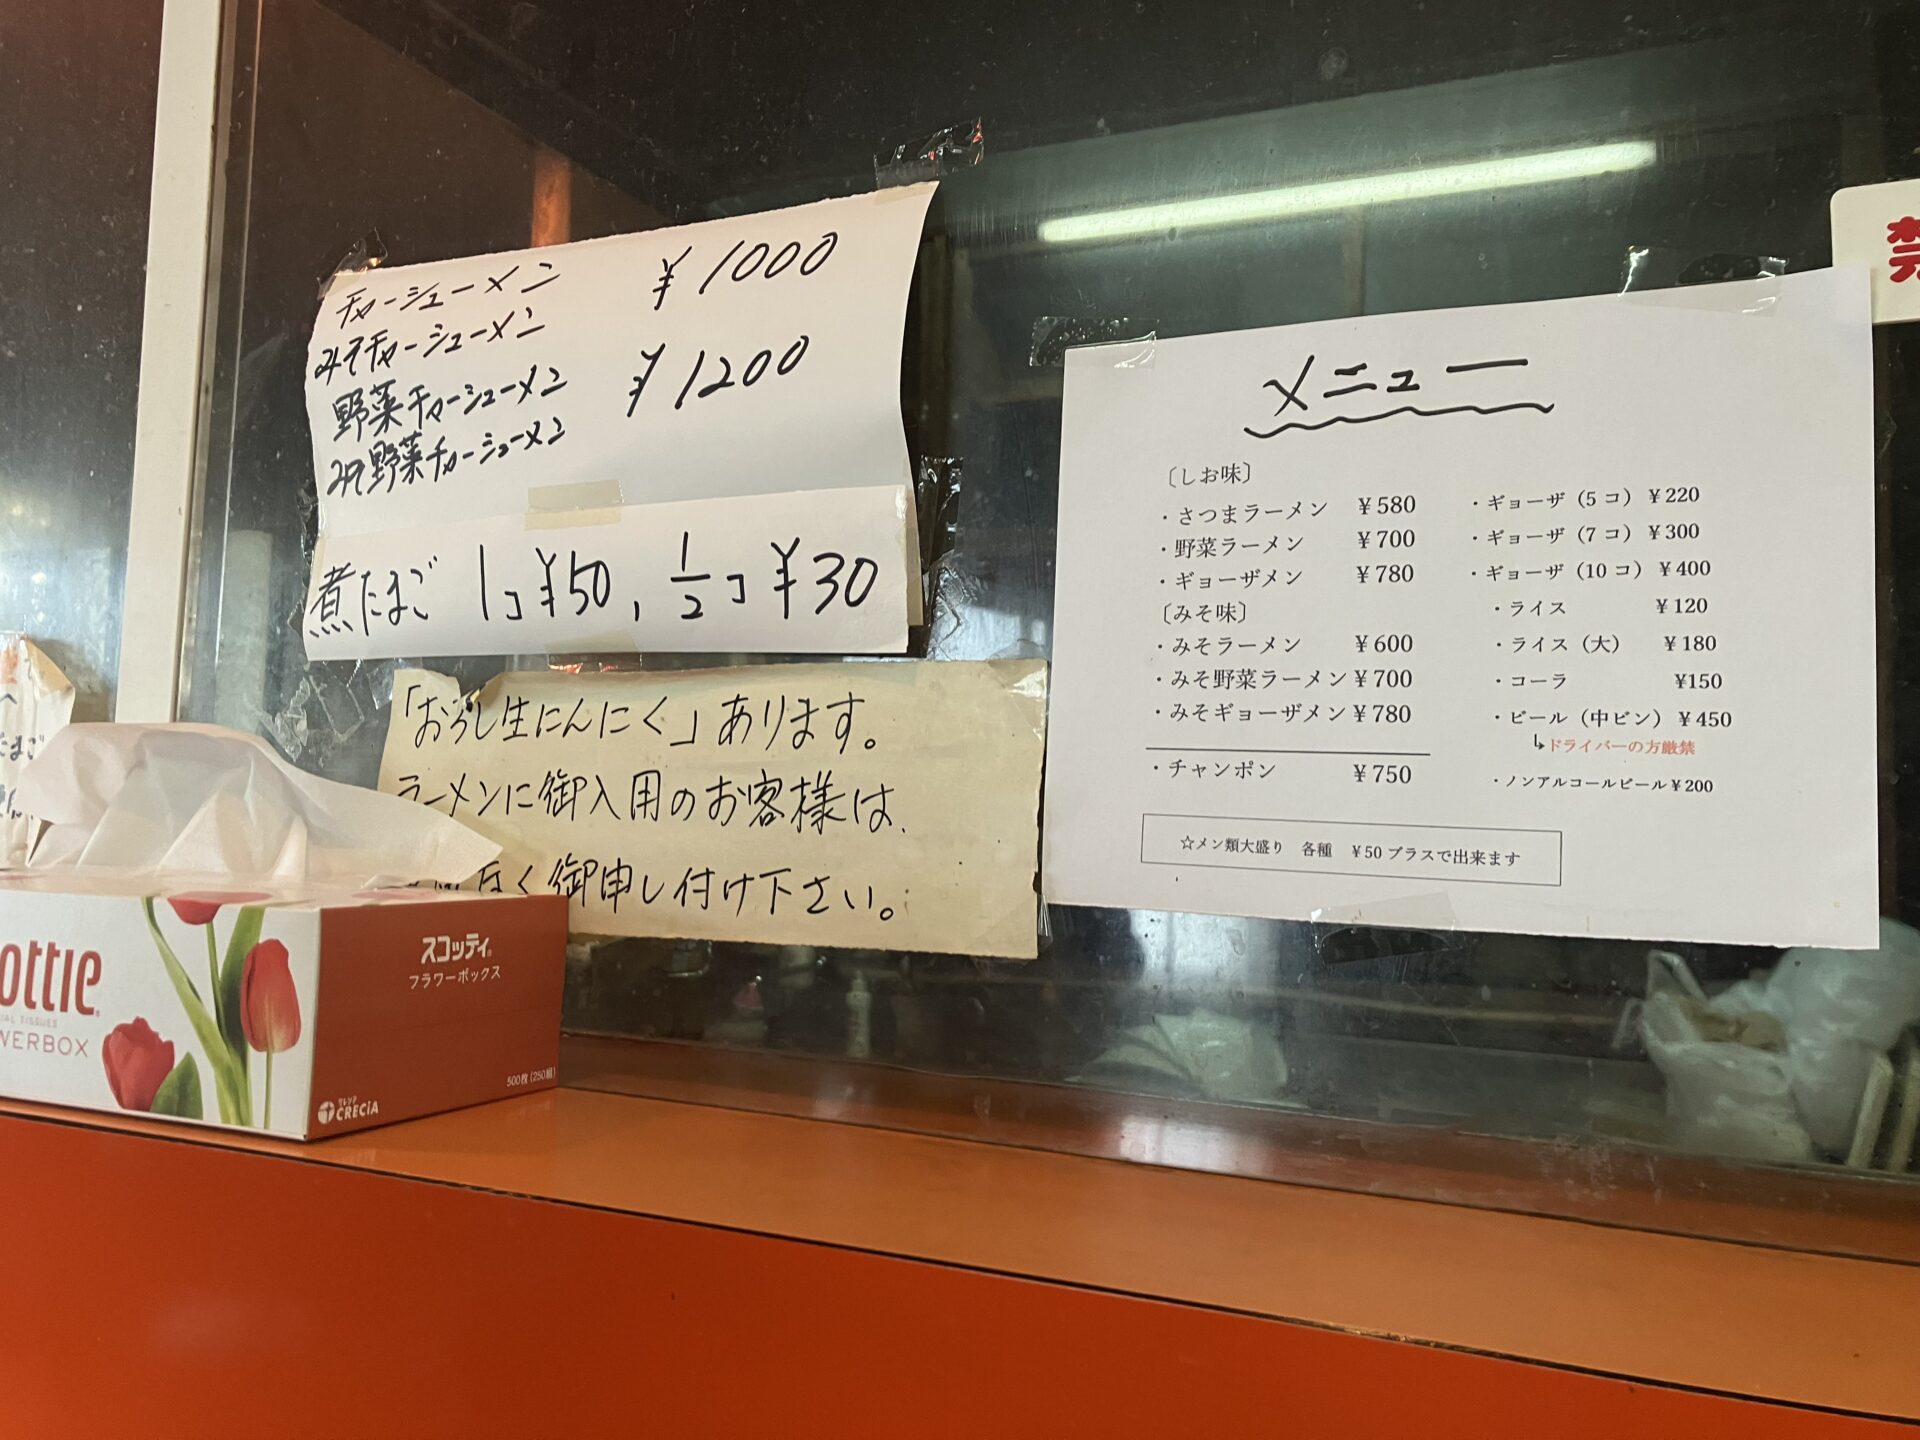 チャーシューメン ¥1000
みそチャーシューメン
野菜チャーシューメン ¥1200
みそ野菜チャーシューメン
煮たまご 1コ¥50, 1/2コ¥30
「おろし生にんにく」あります。
ラーメンに御入用のお客様は、
なく御申し付け下さい。
メニュー
〔しお味〕
・さつまラーメン ¥580
・野菜ラーメン ¥700
・ギョーザメン ¥780
〔みそ味〕
・みそラーメン ¥600
・みそ野菜ラーメン ¥700
・みそギョーザメン ¥780
・チャンポン ¥750
・ギョーザ（5コ）¥220
・ギョーザ（7コ）¥300
・ギョーザ（10コ）¥400
・ライス ¥120
・ライス（大） ¥180
・コーラ ¥150
・ビール（中ビン）¥450
↳ドライバーの方厳禁
・ノンアルコールビール¥200
☆メン類大盛り 各種 ¥50プラスで出来ます
禁
へ
たまご
ottie
スコッティ®
フラワーボックス
WERBOX
500枚(250組)
クレシア
CRECIA